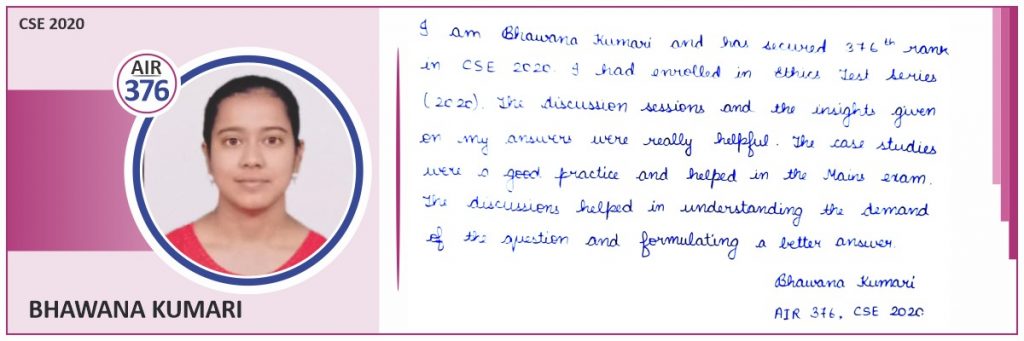 CSE 2020
AIR
376
BHAWANA KUMARI
I am Bhawana Kumari and has secured 376th rank
in CSE 2020. I had enrolled in Ethics Test Series
(2020). The discussion sessions and the insights given
on my answers were really helpful. The case studies
were a good practice and helped in the Mains exam.
The discussions helped in understanding the demand
of the question and formulating a better answer.
Bhawana Kumari
AIR 376, CSE 2020